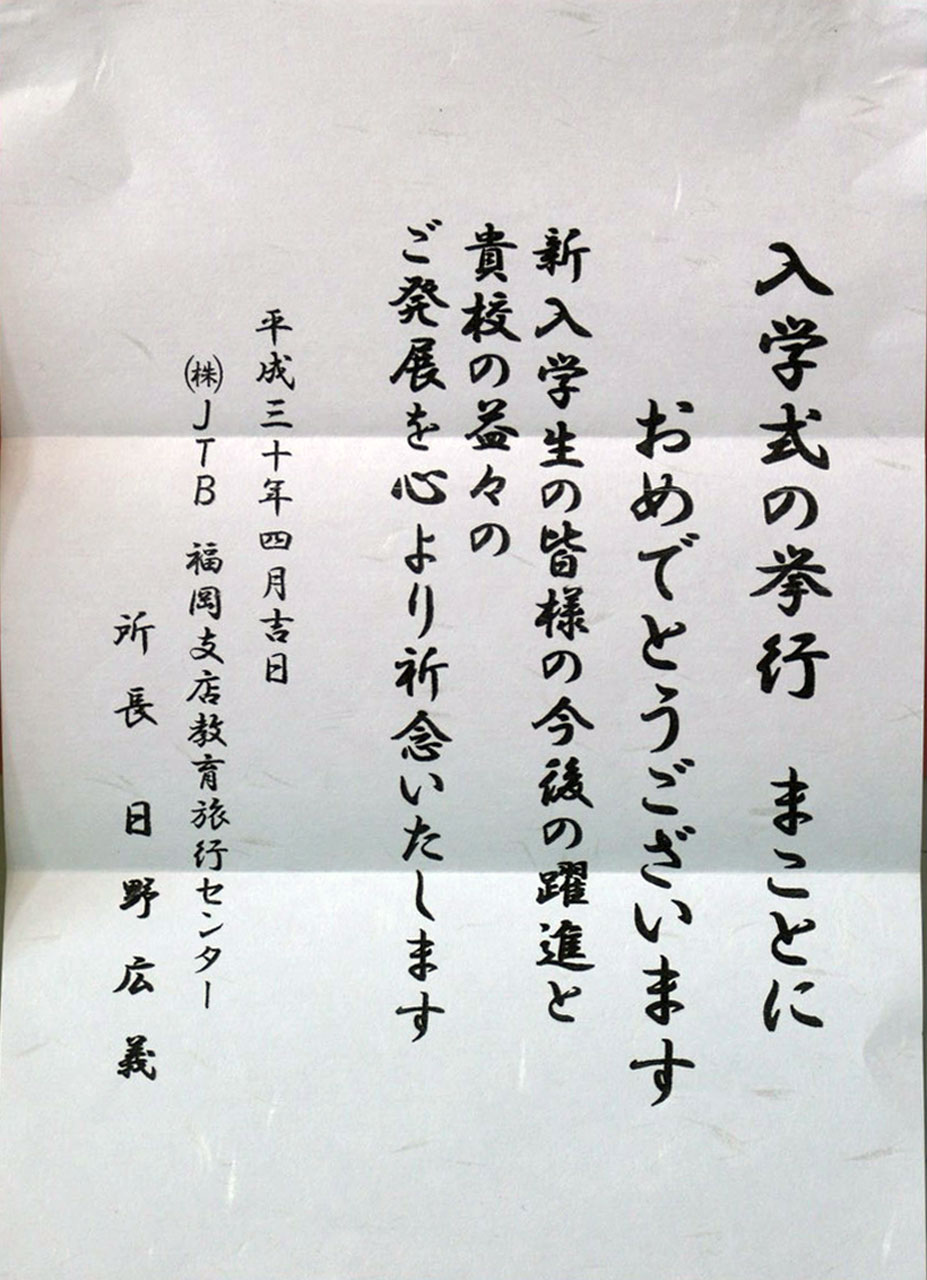 入学式の挙行　まことに
おめでとうございます
新入学生の皆様の今後の躍進と
貴校の益々の
ご発展を心より祈念いたします
平成三十年四月吉日
㈱ＪＴＢ　福岡支店教育旅行センター
所長　日野広義